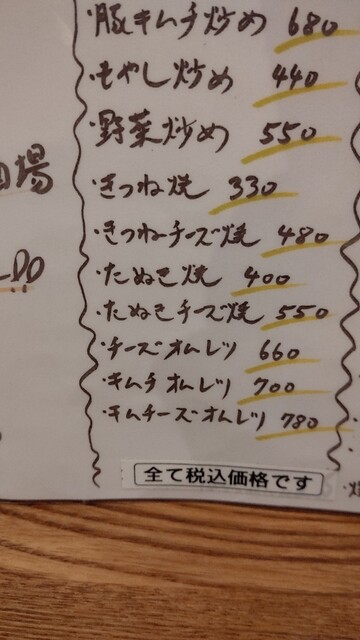 豚キムチ炒め 680
もやし炒め 440
野菜炒め 550
きつね焼 330
きつねチーズ焼 480
たぬき焼 400
たぬきチーズ焼 550
チーズオムレツ 660
キムチオムレツ 700
キムチーズオムレツ 780
全て税込価格です
場